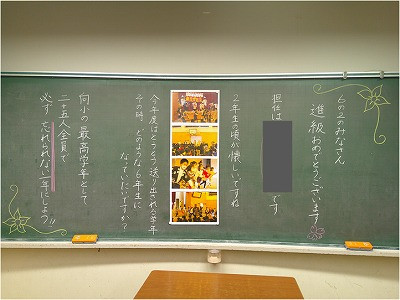 6の2のみなさん
進級おめでとうございます
担任は
です
2年生の頃が懐しいですね
今年度はとうとう送り出される学年
その時、どのような6年生に
なっていたいですか?
向小の最高学年として
二十五人全員で
必ず忘れられない一年にしよう!!